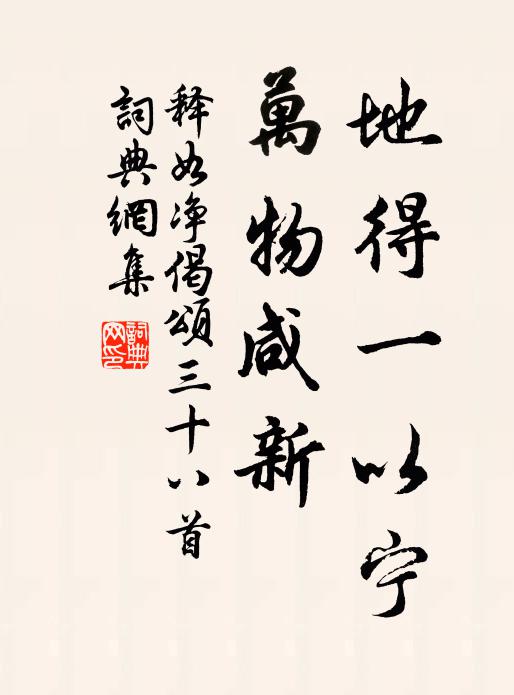 地得一以宁
萬物咸新
释如净偈頌三十八首
詞典網集
詞典網印